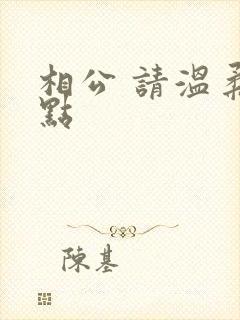 相公 請溫柔
點
陳基